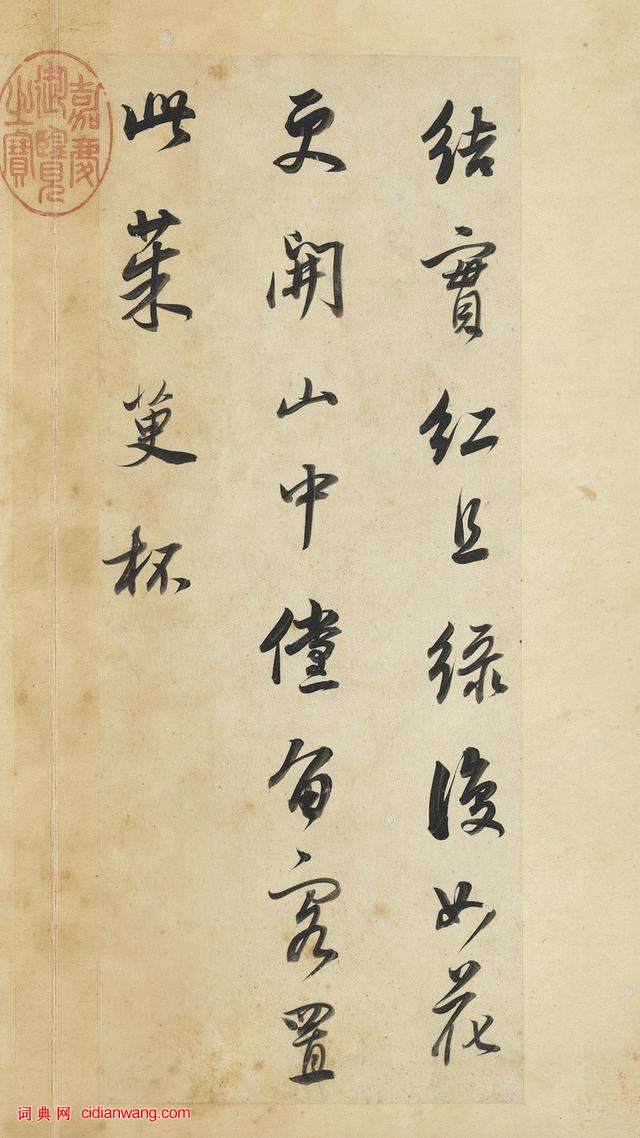 結實紅且綠復如花
更開山中儻留客置
此茱萸杯
嘉慶
御覽
之寶
词典网 cidianwang.com